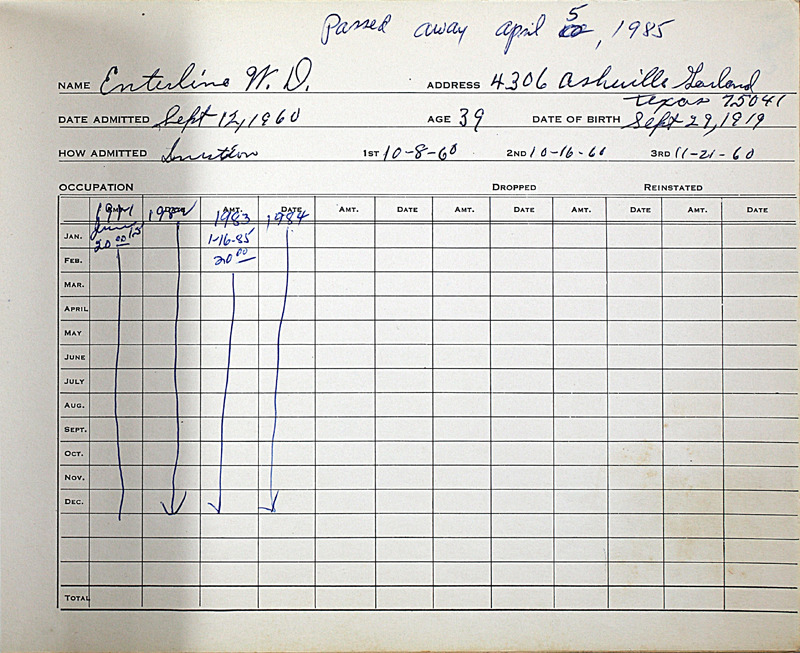 Passed away april 5, 1985
NAME Enterline W. D. ADDRESS 4306 Ashville Garland
Texas 75041
DATE ADMITTED Sept 12, 1960 AGE 39 DATE OF BIRTH Sept 29, 1919
HOW ADMITTED 1ST 10-8-60 2ND 10-16-60 3RD 11-21-60
OCCUPATION DROPPED REINSTATED
AMT. DATE AMT. DATE AMT. DATE AMT. DATE AMT. DATE
1983 1984
JAN. 20 00 1-16-85
FEB. 20 00
MAR.
APRIL
MAY
JUNE
JULY
AUG.
SEPT.
OCT.
NOV.
DEC.
TOTAL